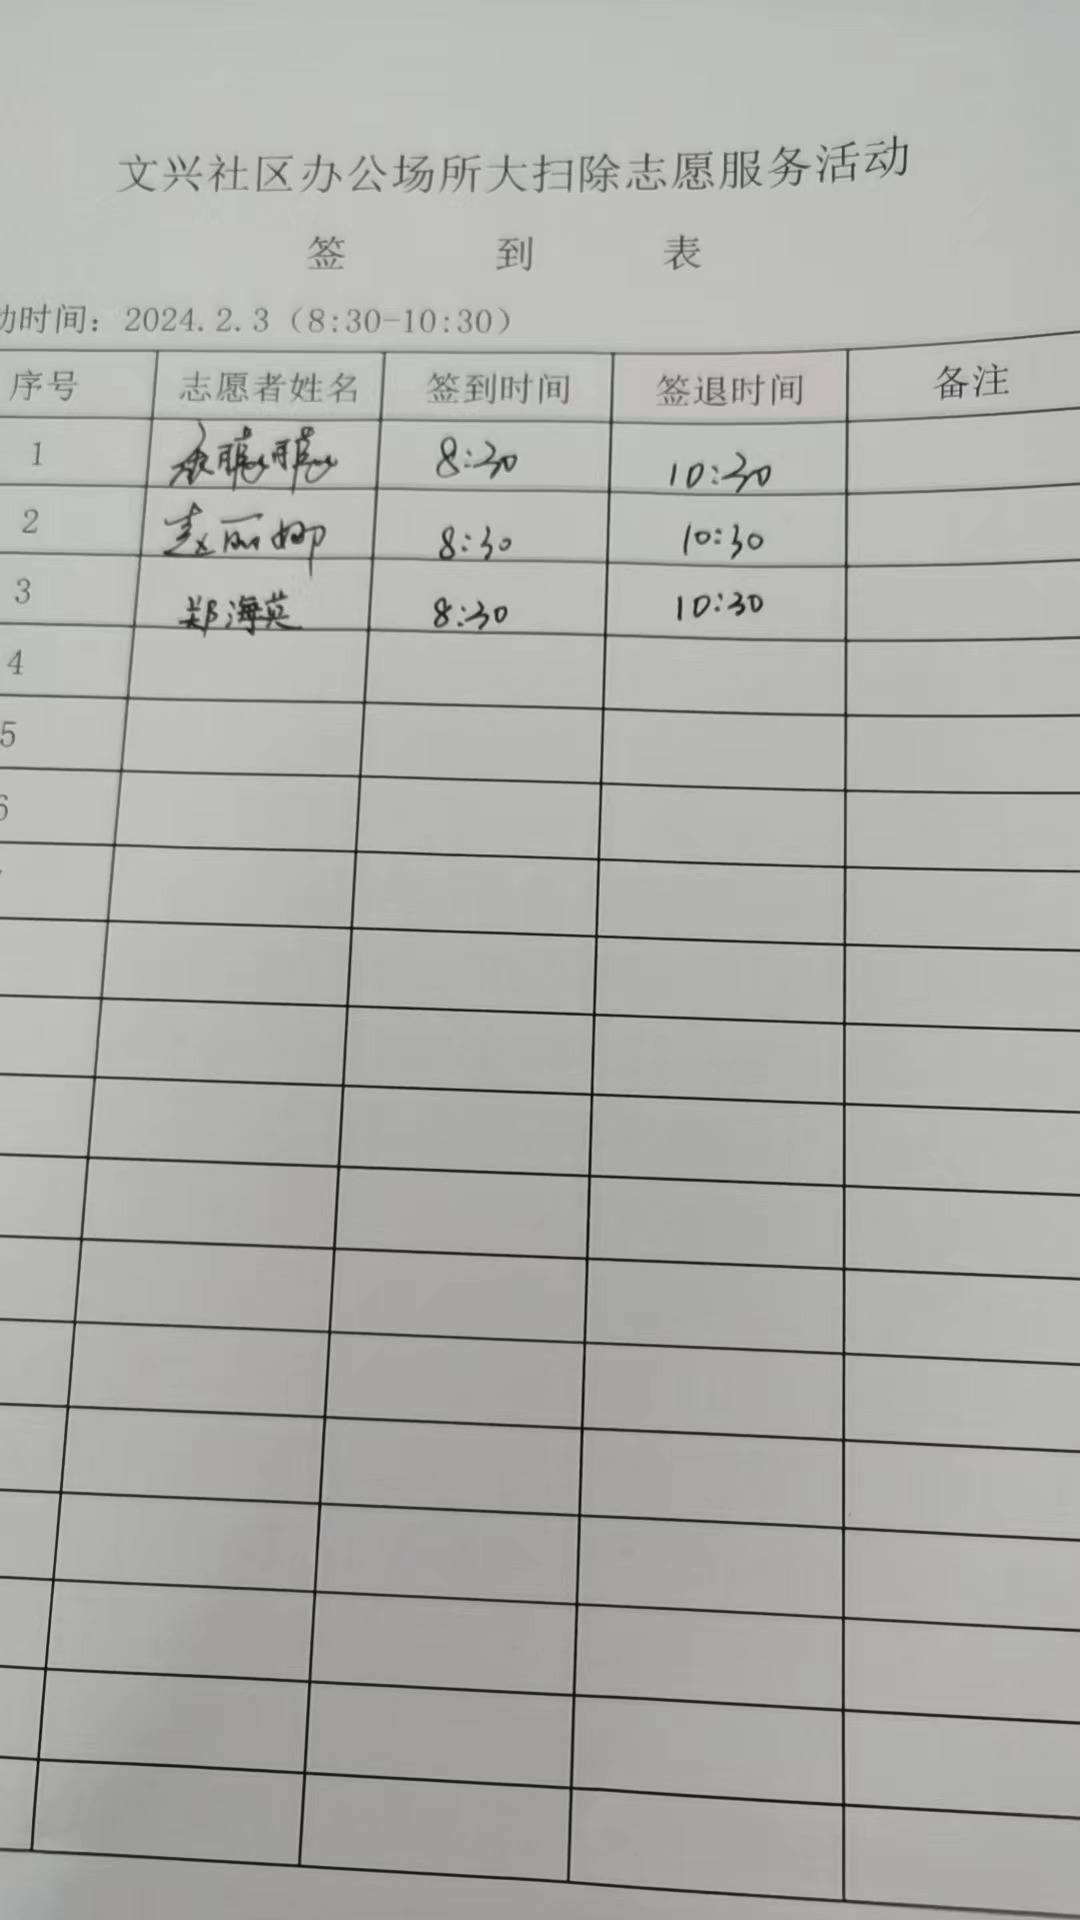 文兴社区办公场所大扫除志愿服务活动
签 到 表
动时间：2024.2.3（8:30-10:30）
序号 志愿者姓名 签到时间 签退时间 备注
1 8:30 10:30
2 赵丽娜 8:30 10:30
3 郑海英 8:30 10:30
4
5
6